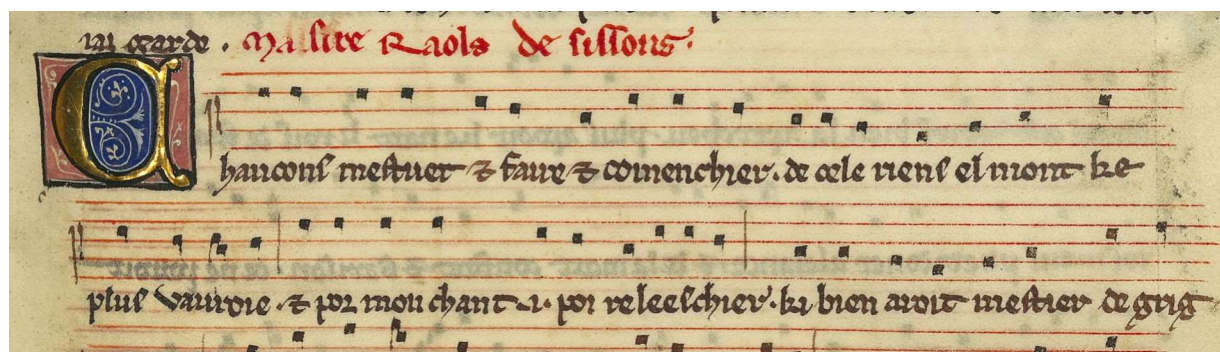 iai garde . Maistre Raols de sissons.
Chancons mestuet & faire & comenchier . de cele riens el mont ke
plus vauroie . & por mon chant . i . por releeschier . ki bien auroit mestier de grig